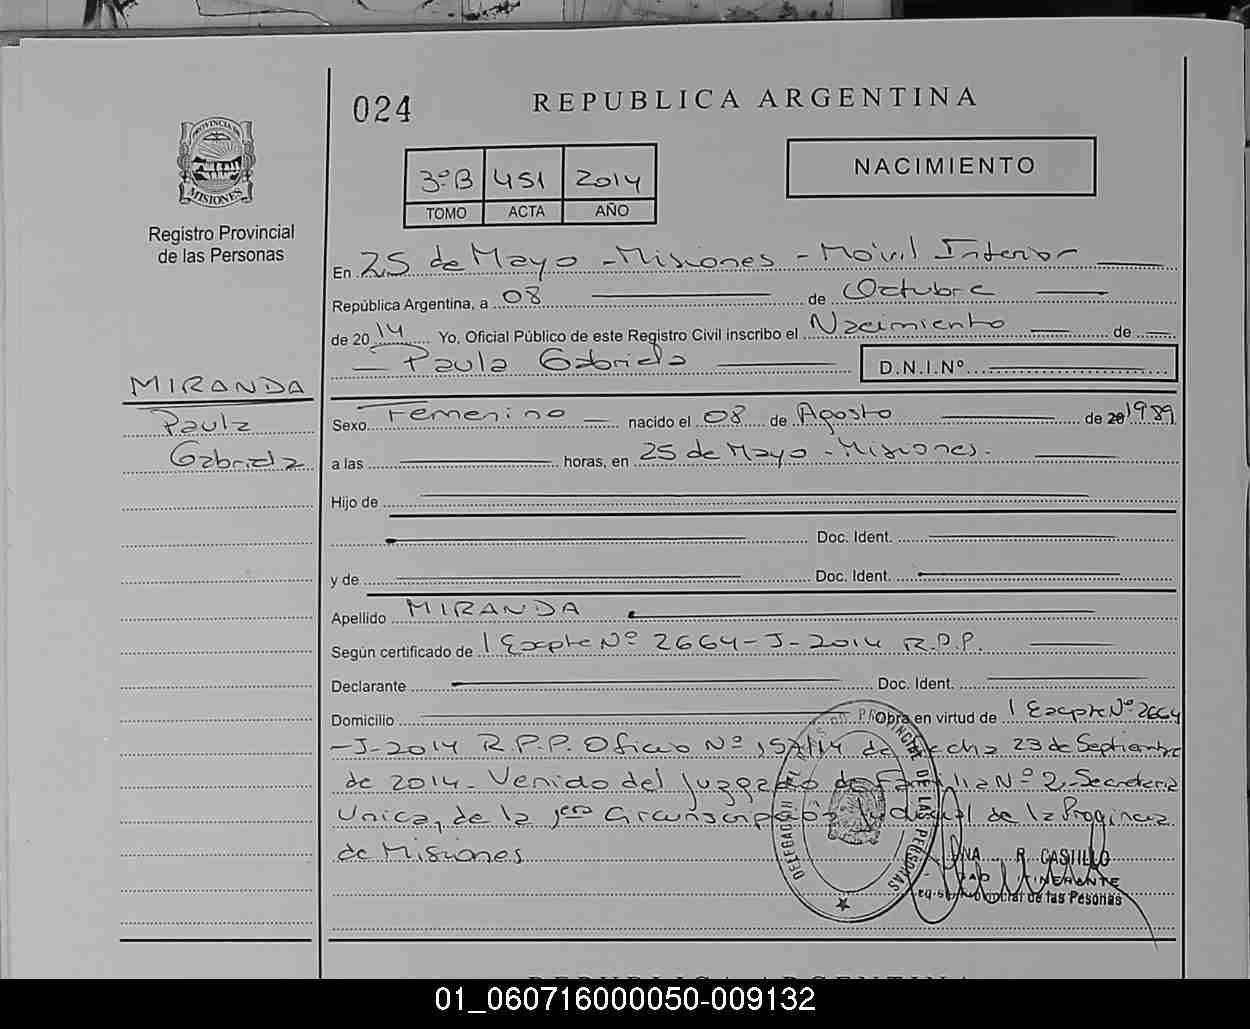 024
REPUBLICA ARGENTINA
PROVINCIA DE
MISIONES
Registro Provincial
de las Personas
3º B 451 2014
TOMO ACTA AÑO
NACIMIENTO
En 25 de Mayo - Misiones - Móvil Interior
República Argentina, a 08 de Octubre
de 2014 Yo, Oficial Público de este Registro Civil inscribo el Nacimiento de
Paula Gabriela
D.N.I.Nº
MIRANDA
Paula
Gabriela
Sexo Femenino nacido el 08 de Agosto de 20 1989
a las horas, en 25 de Mayo - Misiones.
Hijo de
Doc. Ident.
y de Doc. Ident.
Apellido MIRANDA
Según certificado de 1 Expte Nº 2664-J-2014 R.P.P.
Declarante Doc. Ident.
Domicilio Obra en virtud de 1 Expte Nº 2664
-J-2014 R.P.P. Oficio Nº 157/14 de fecha 23 de Septiembre
de 2014. Venido del Juzgado de Familia Nº 2, Secretaria
Unica, de la 1era Circunscripción Judicial de la Provincia
de Misiones
DELEGACION DEL PROVINCIAL DE LAS PERSONAS
R. CASTILLO
ITINERANTE
de las Pesonas
REPUBLICA ARGENTINA
01_060716000050-009132